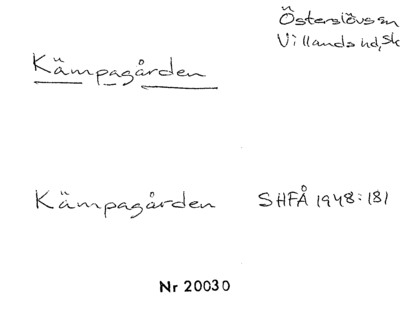 Österslövs sn
Villands hd, Sk
Kämpagården
Kämpagården SHFÅ 1948:181
Nr 20030